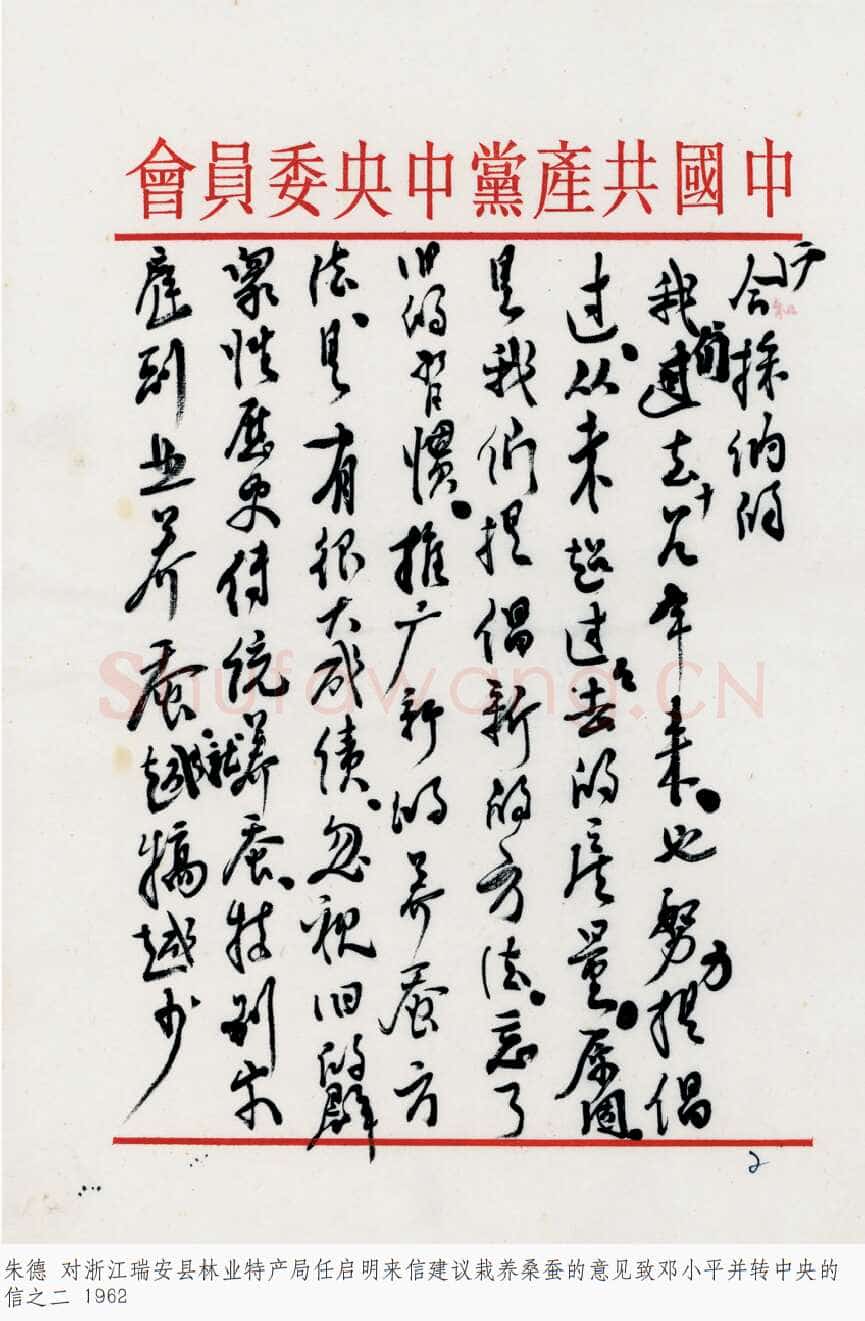 中國共產黨中央委員會
会採纳的
我们过去十几年来。也努力提倡
过、从未超过々去的产量。原因、
是我们提倡新的方法。忘了
旧的习惯。推广新的养蚕方
法、是有很大成绩、忽视旧的群
众性历史传统养蚕、特别家
庭副业养蚕、就越搞越少
2
Shufawang.CN
朱德 对浙江瑞安县林业特产局任启明来信建议栽养桑蚕的意见致邓小平并转中央的
信之二 1962